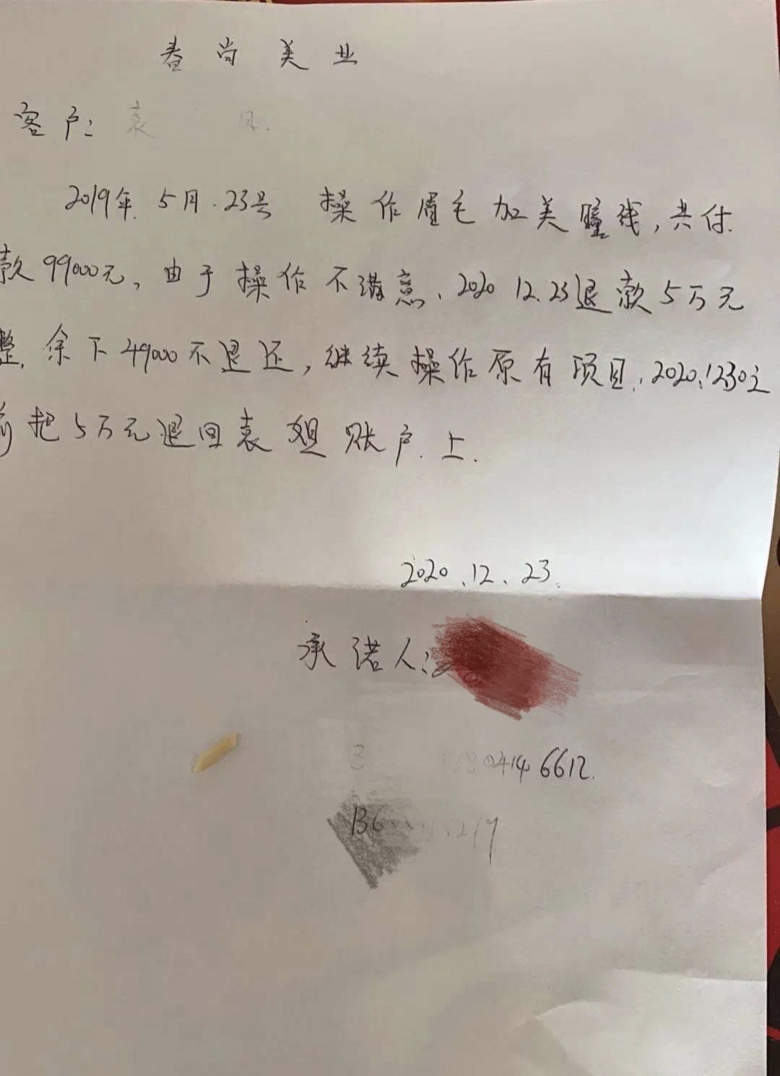 春尚美业
客户：袁
2019年.5月.23号 操作眉毛加美瞳线，共付
款99000元，由于操作不满意、2020 12.23退款5万元
整，余下49000不退还，继续操作原有项目，2020.1230之
前把5万元退回袁姐账户上.
2020.12.23.
承诺人：
0414 6612.